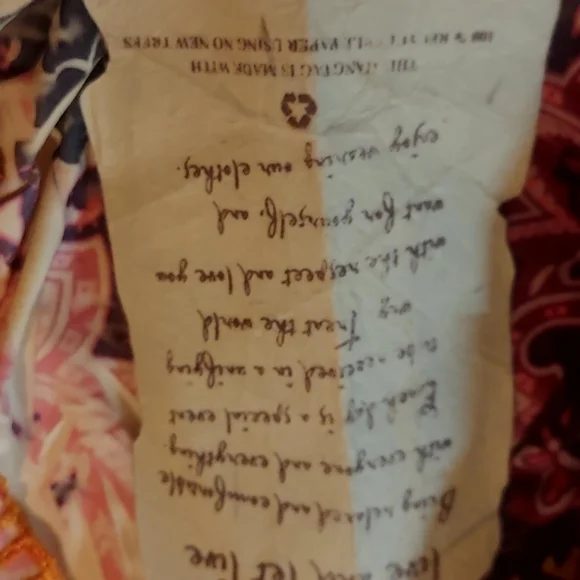 live and let live
Being relaxed and comfortable
with everyone and everything.
Each day is a special event
to be received in a unifying
way. Treat the world
with the respect and love you
want for yourself, and
enjoy wearing our clothes.
THE HANGTAG IS MADE WITH
100% RECYCLED PAPER USING NO NEW TREES